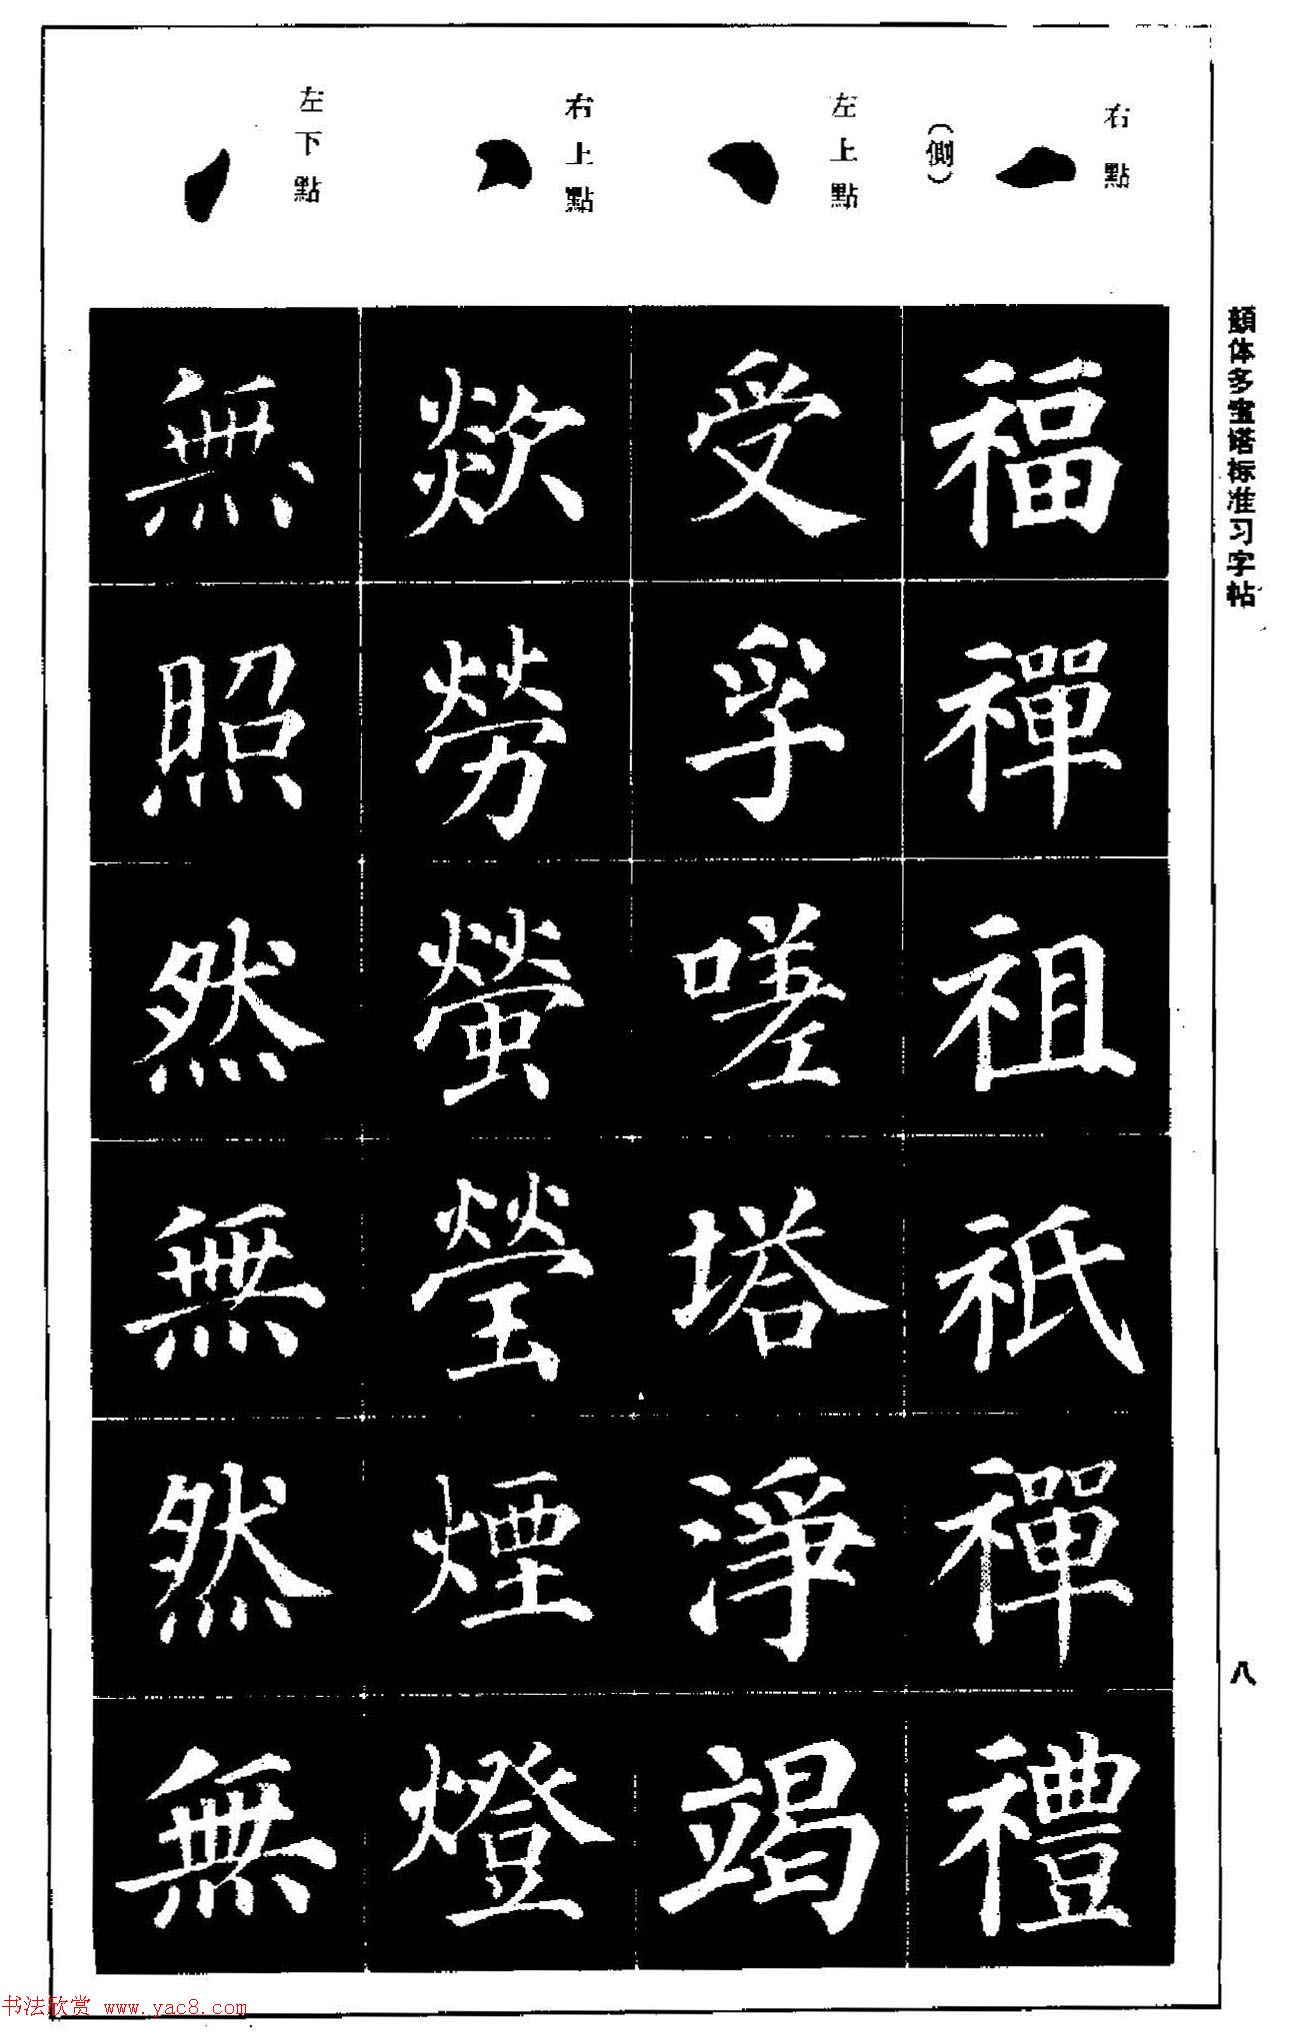 顏体多宝塔标准习字帖
八
右點
(側)
左上點
右上點
左下點
福禪祖祇禪禮
受孚嗟塔淨竭
歘勞螢瑩煙燈
無照然無然無
书法欣赏 www.yac8.com